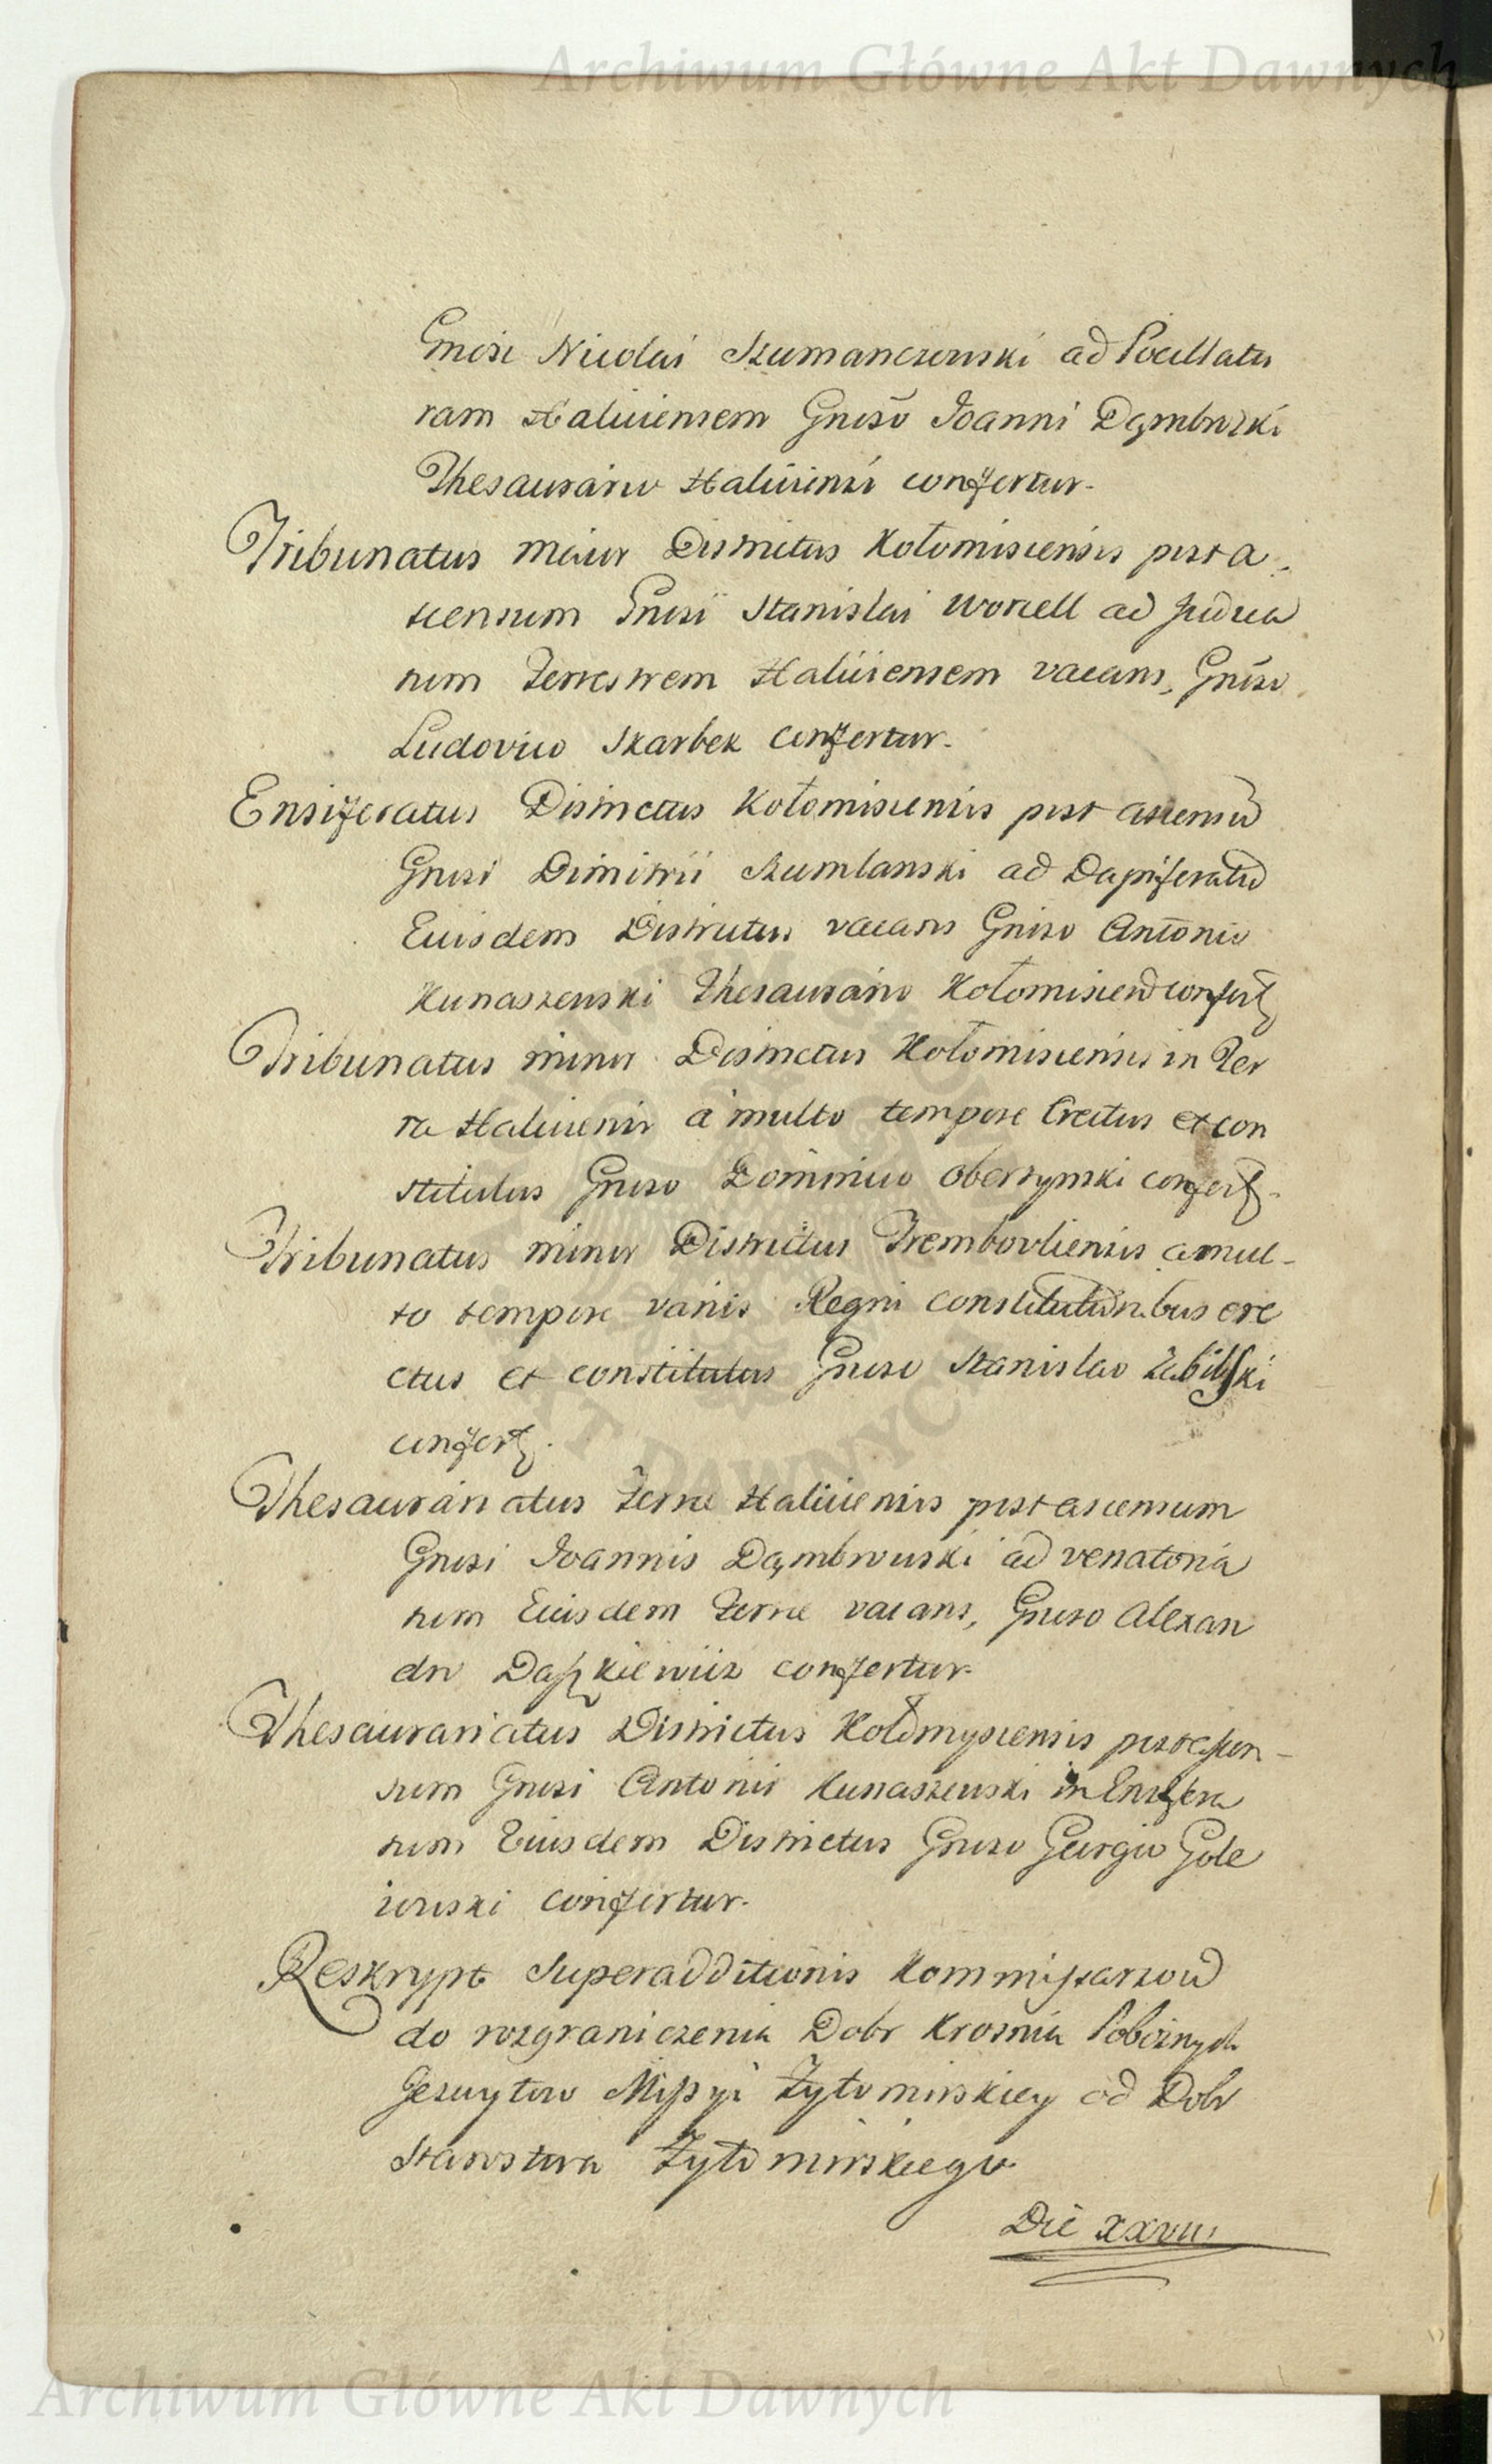 Archiwum Główne Akt Dawnych
Gnosi Nicolai Szumanczowski ad Pocillatu
ram Haliciensem Gnoso Joanni Dąmbrski
Thesaurario Haliciensi confertur.
Tribunatus maior Districtus Kołomisiensis post a
scensum Gnosi Stanislai Worcell ad Judica
tum Terrestrem Haliciensem vacans, Gnoso
Ludovico Skarbek confertur.
Ensiferatus Districtus Kołomisiensis post ascensu
Gnosi Dimitrii Szumlanski ad Dapiferatu
Eiusdem Districtus vacans Gnoso Antonio
Kunaszewski Thesaurario Kołomisien confert
Tribunatus minor Districtus Kołomisiensis in Ter
ra Haliciensi a multo tempore Erectus et con
stitutus Gnoso Dominico Obertynski confert.
Tribunatus minor Districtus Trembovliensis a mul-
to tempore variis Regni constitutionibus ere
ctus et constitutus Gnoso Stanislao
confert.
Thesaurariatus Terrae Haliciensis post ascensum
Gnosi Joannis Dąmbrowski ad venatoria
tum Eiusdem Terrae vacans, Gnoso Alexan
dro Daszkiewicz confertur.
Thesaurariatus Districtus Kołomysiensis post ascen-
sum Gnosi Antonii Kunaszewski in Ensifera
tum Eiusdem Districtus Gnoso Georgio Gole
iewski confertur.
Reskrypt Superadditionis Kommissarzow
do rozgraniczenia Dobr Krosnia Pobożnych
Jezuytow Missyi Żytomirskiey od Dobr
Starostwa Żytomirskiego
Die XXVIII
Archiwum Główne Akt Dawnych